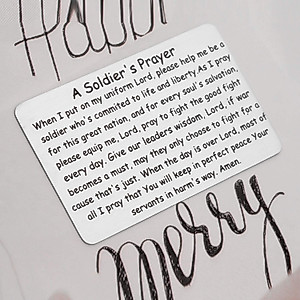 Happy
A Soldier's Prayer
When I put on my uniform Lord, please help me be a
soldier who's committed to life and liberty.As I pray
for this great nation, and for every soul's salvation,
please equip me, Lord, pray to fight the good fight
every day. Give our leaders wisdom, Lord, if war
becomes a must, may they only choose to fight for a
cause that's just. When the day is over Lord, most of
all I pray that You will keep in perfect peace Your
servants in harm's way. Amen.
Merry